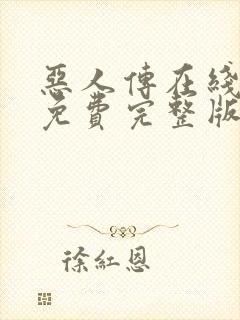 惡人傳在綫
免費完整版
徐紅恩